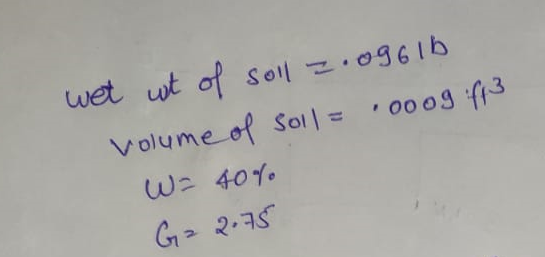 wet wt of soil = .096 lb
volume of soil = .0009 ft3
W= 40%
G= 2.75